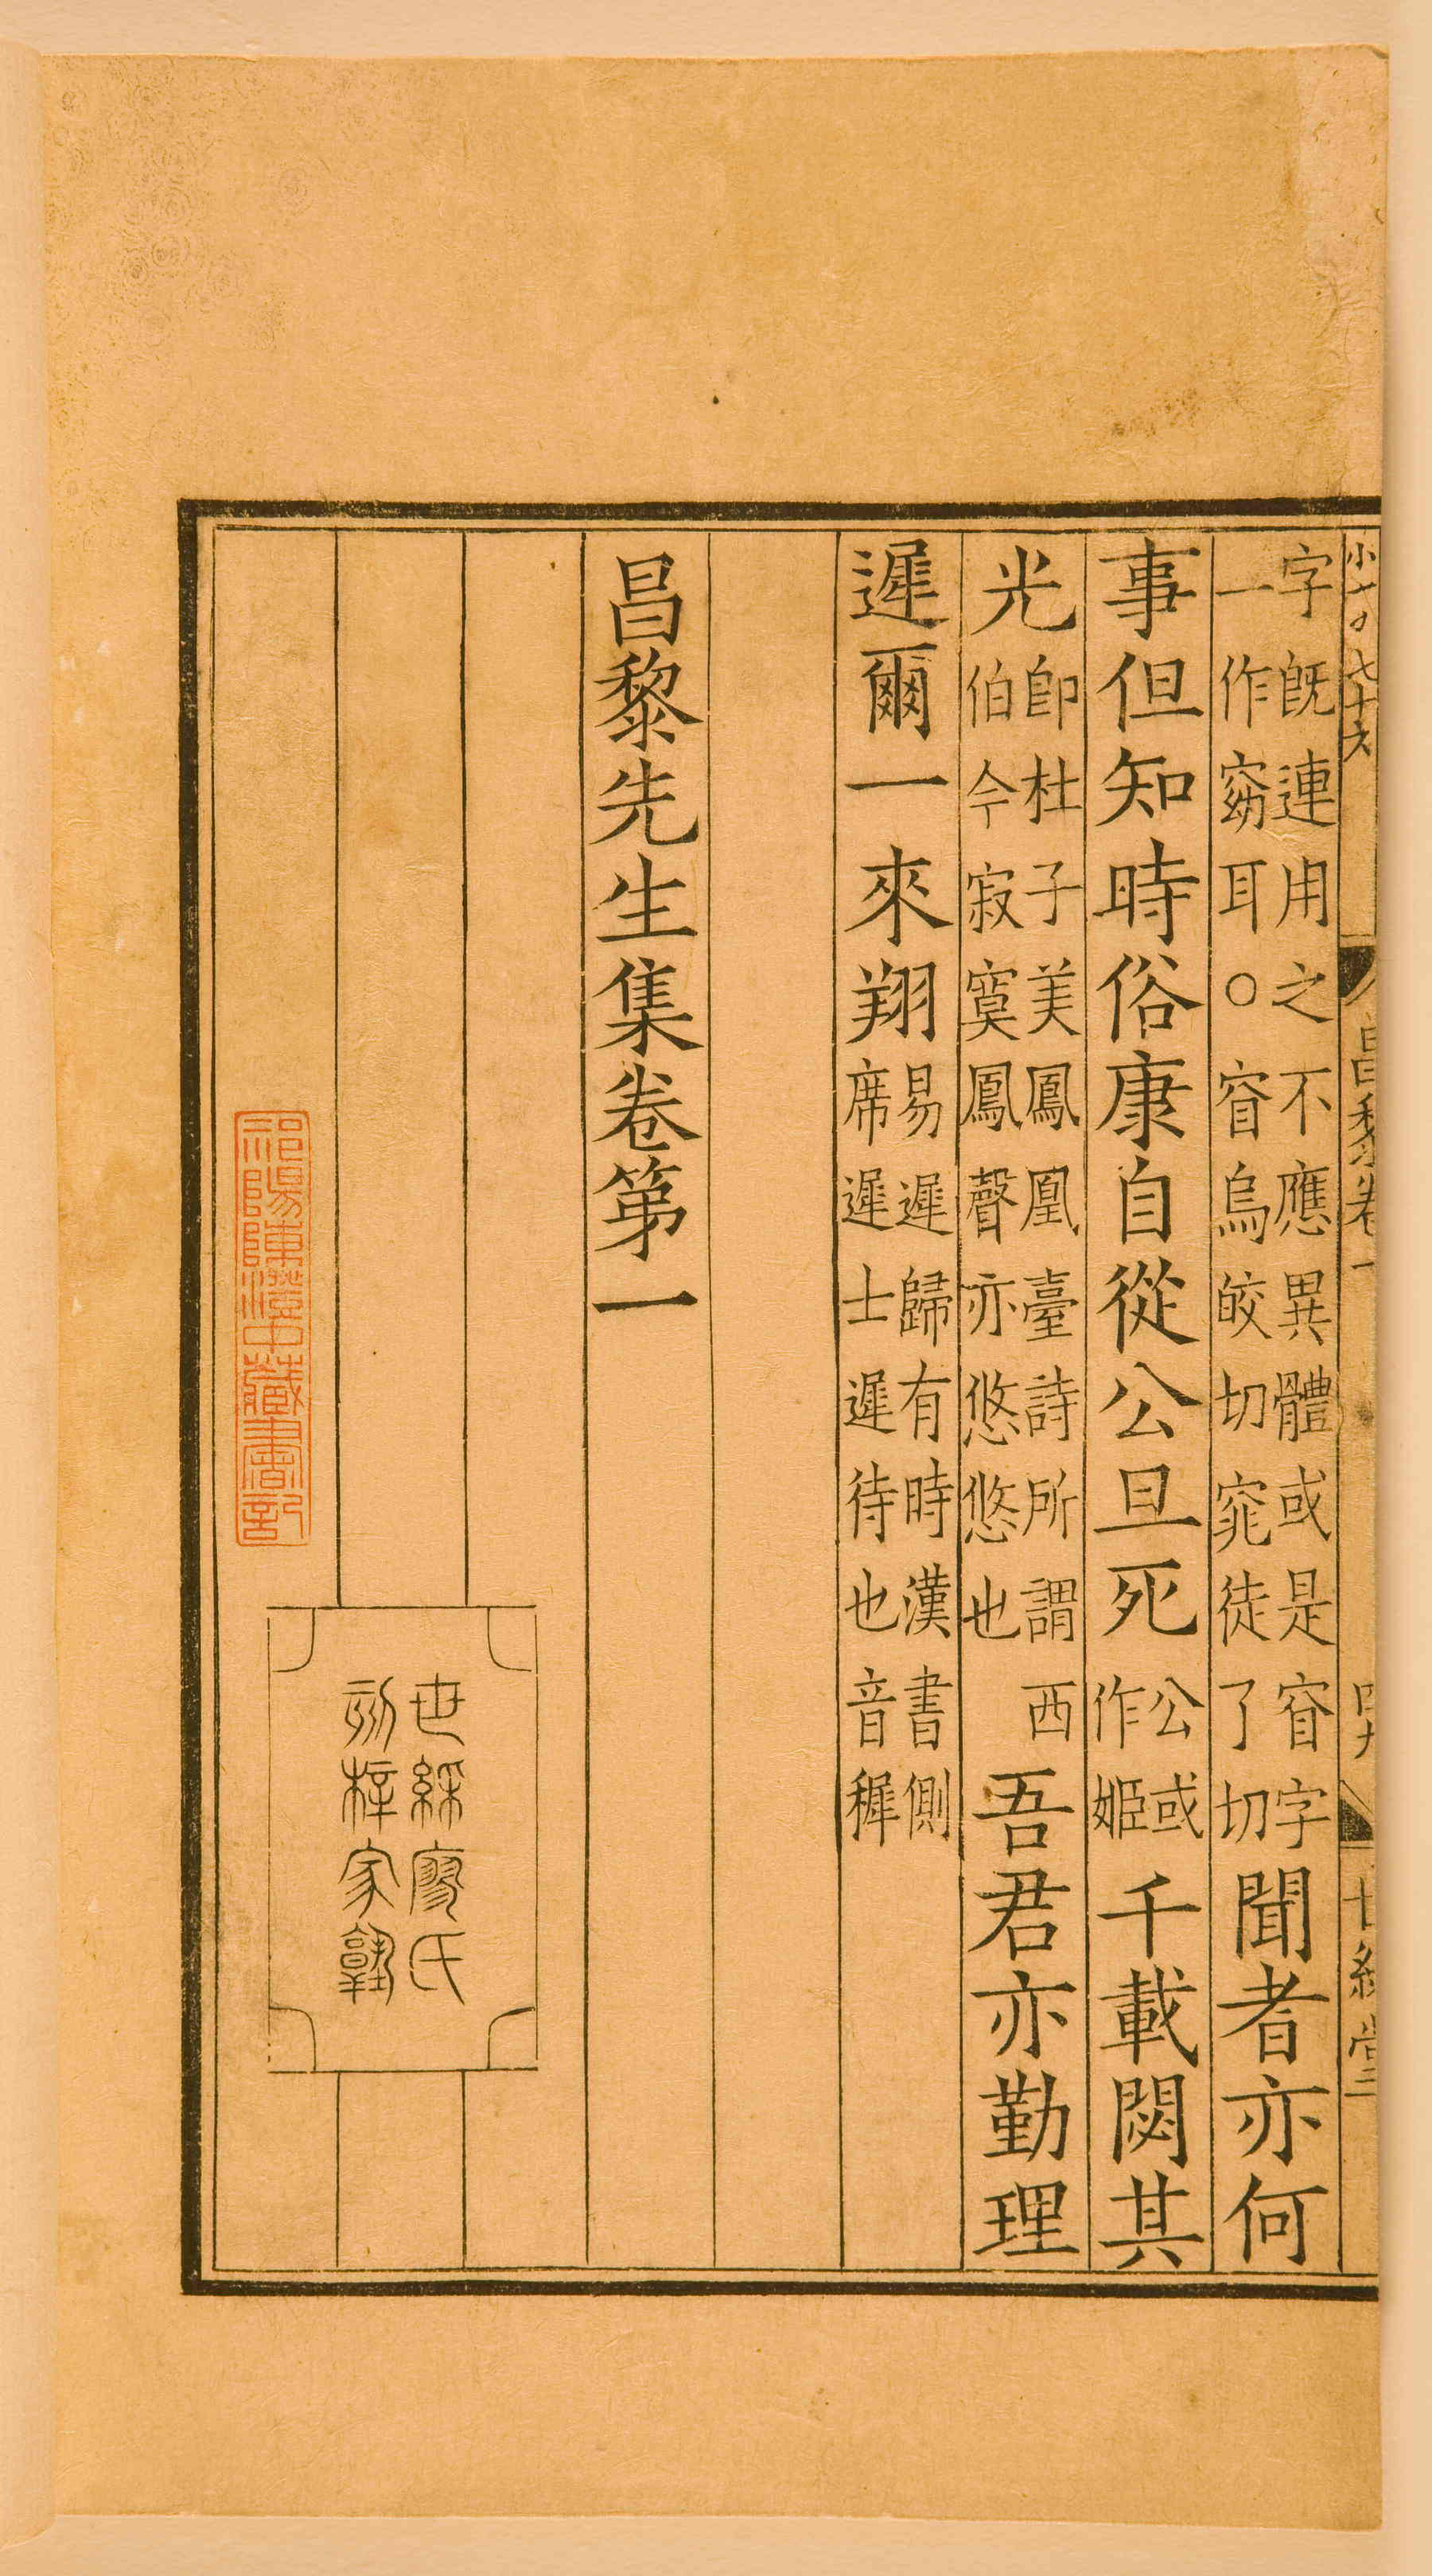 字既連用之不應異體或是窅字
一作窈耳○窅烏皎切窕徒了切
聞者亦何
事但知時俗康自從公旦死
公或
作姬
千載閟其
光
卽杜子美鳳凰臺詩所謂西
伯今寂寞鳳聲亦悠悠也
吾君亦勤理
遲爾一來翔
易遲歸有時漢書側
席遲士遲待也音穉
昌黎先生集卷第一
世綵廖氏
刻梓家塾
祁陽陳澄中藏書記
昌黎卷一